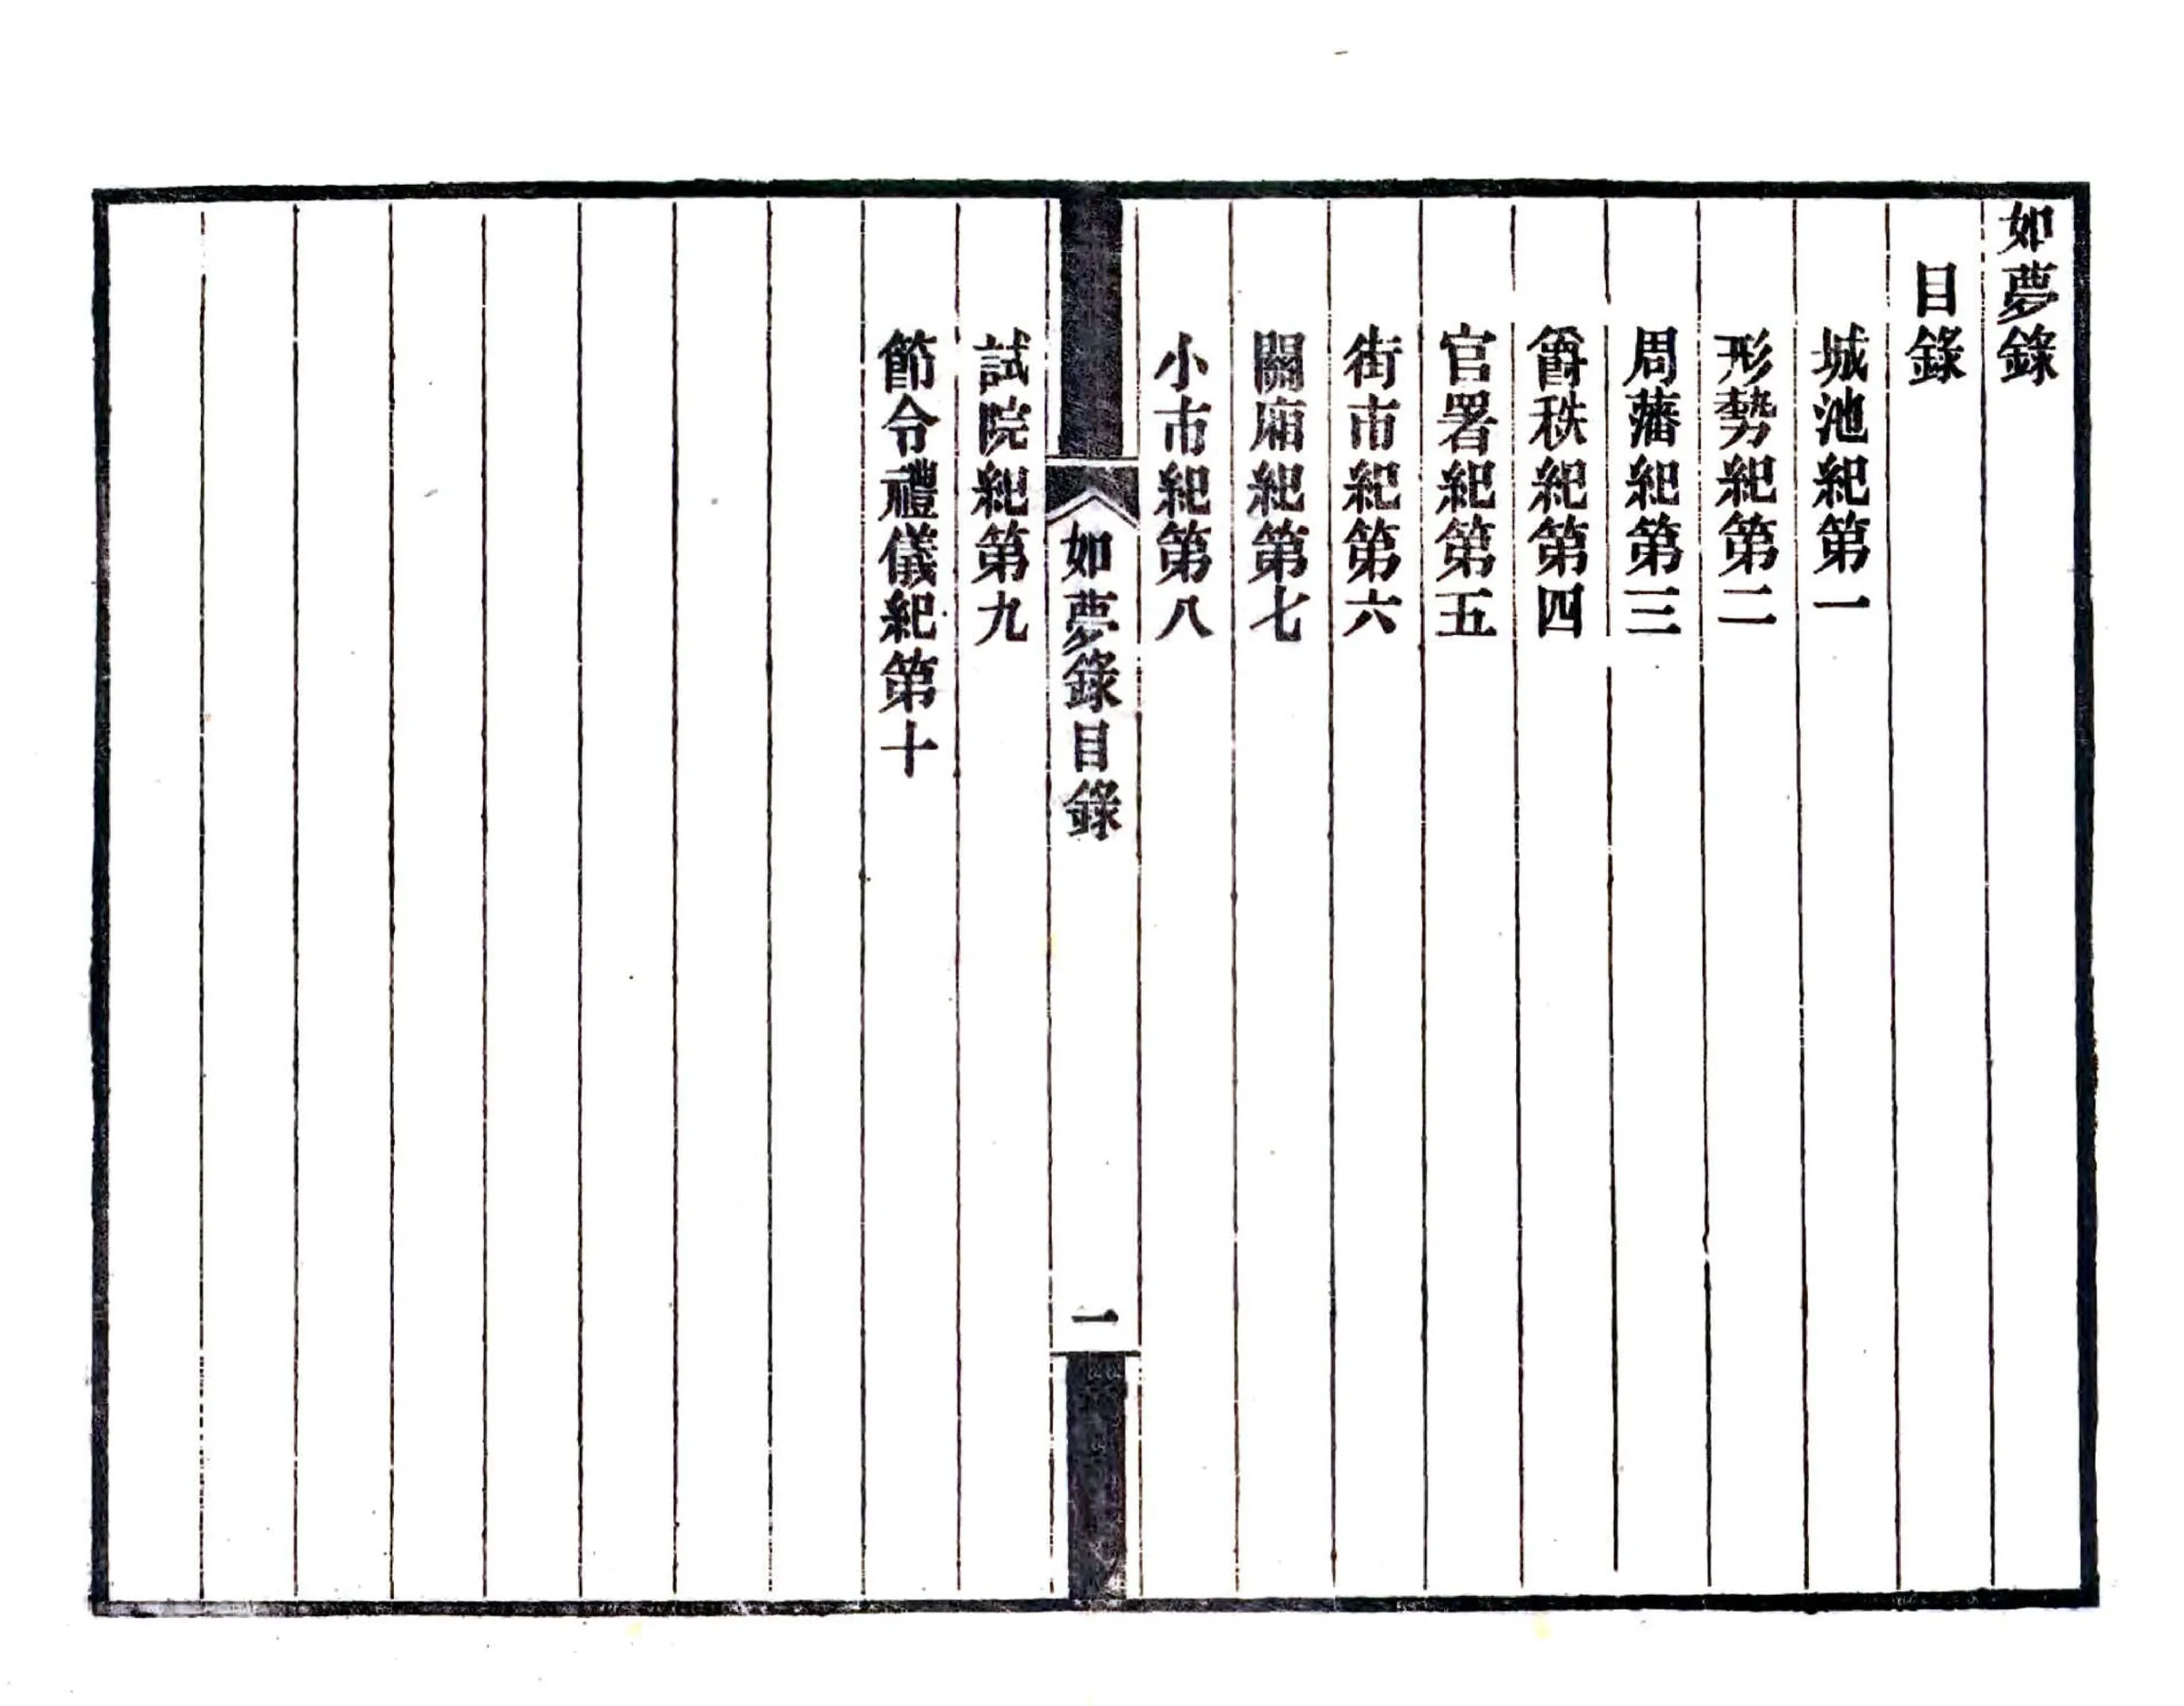 如夢錄
目錄
城池紀第一
形勢紀第二
周藩紀第三
爵秩紀第四
官署紀第五
街市紀第六
關廂紀第七
小市紀第八
如夢錄目錄
一
試院紀第九
節令禮儀紀第十